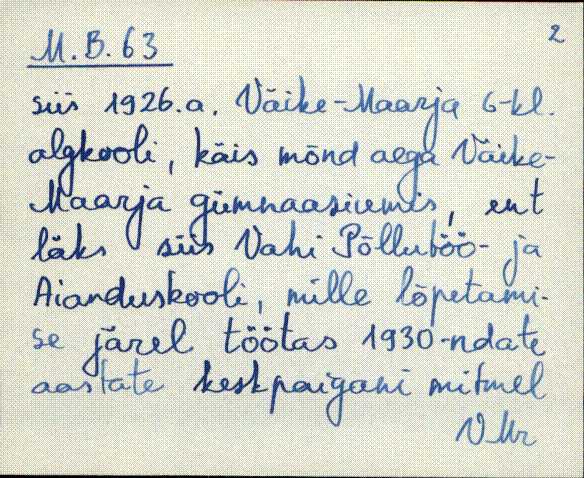 M.B.63
2
siis 1926.a. Väike-Maarja 6-kl.
algkooli, käis mõnd aega Väike-
Maarja gümnaasiumis, ent
läks siis Vahi Põllutöö- ja
Aianduskooli, mille lõpetami-
se järel töötas 1930-ndate
aastate keskpaigani mitmel